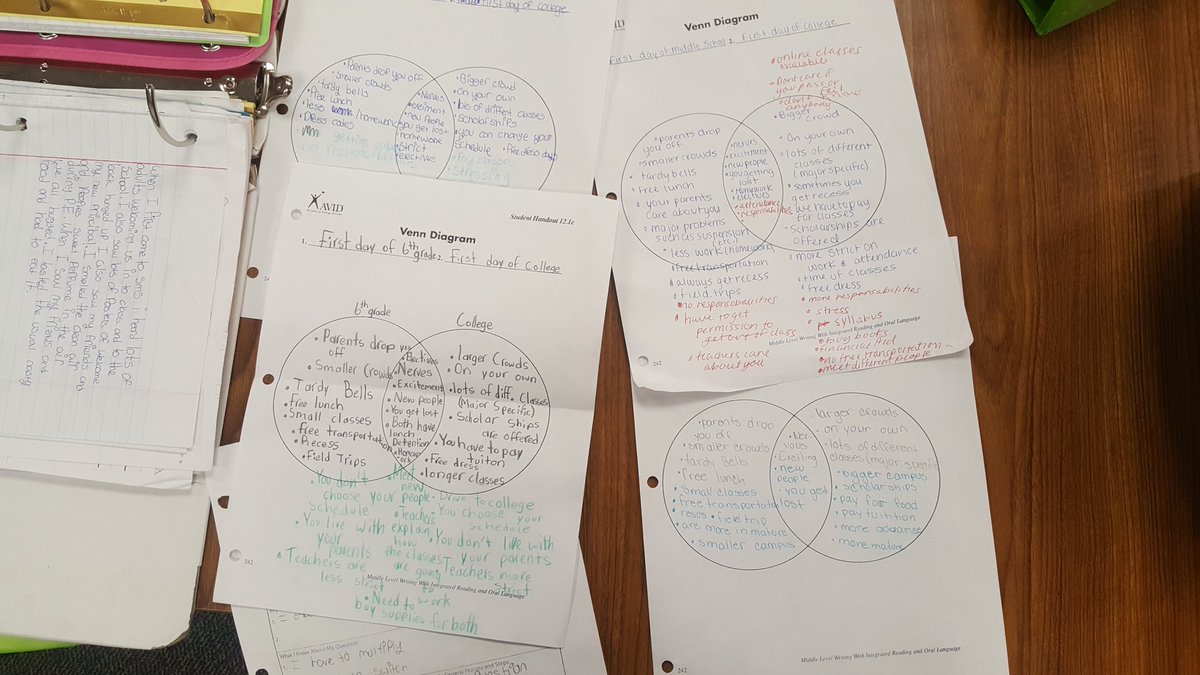 when I first come to sms I heard lots of
adults welcoming us in to class and to the
school. I also saw lots of Posters of welcome
back hunged up I also saw my friends and
my new Principal. I smelled the clean air
and Peoples sweat Perfume in the air
during P.E. when I saw my
First day of college
Parents drop you off
Smaller crowds
tardy bells
Free lunch
less work/homework
Dress codes
Nerves
new people
you get lost
homework
Strict
electives
Bigger crowd
On your own
lots of different classes
Scholarships
you can change your
schedule
free dress days
Pay classes
stressing
AVID
Student Handout 12.1c
Venn Diagram
1. First day of 6th grade 2. First day of College
6th grade
College
Parents drop you
off
Smaller Crowds
Tardy Bells
Free lunch
Small classes
free transportation
Recess
Field Trips
Electives
Nerves
Excitement
New people
You get lost
Both have
lunch
Detention
larger Crowds
On your own
lots of diff. Classes
(Major Specific)
Scholar ships
are offered
You have to pay
tuiton
Free dress
longer classes
You don't
choose your
schedule
You live with
your
parents
Teachers are
less strict
Meet
new
people
Teachers
explain
how
the classes
are going
to
work.
Drive to college
You choose your
schedule
You don't live with
your parents
Teachers more
strict
Need to
buy supplies for both
242
Middle Level Writing With Integrated Reading and Oral Language
What I Know About My Question
1. I have to multiply
switch
AVID
Venn Diagram
First day of middle School 2. First day of College
online classes
available
Dont care if
you pass or
fail
don't know
anybody
Bigger
crowd
parents drop
you off
smaller crowds
tardy bells
free lunch
your parents
care about you
major problems
such as suspension
(etc.)
less work (homework)
free transportation
always get recess
field trips
no responsabalities
have to get
permission to
get out of class
teachers care
about you
nerves
excitement
new people
you getting
lost
Homework
electives
attendance
responsabilities
On your own
lots of different
classes
(major specific)
sometimes you
get recess
we have to pay
for classes
scholarships are
offered
more strict on
work & attendance
time of classes
free dress
more responsabilities
stress
syllabus
buy books
Financial Aid
meet different people
242
Middle Level Writing With Integrated Reading and Oral Language
parents drop
you off
smaller crowds
Tardy Bells
free lunch
Small classes
free transportation
reses
field trip
are more in mature
smaller campus
Ner-
vous
Exciting
new
people
you get
lost
larger crowds
on your own
lots of different
bigger campus
scholarships
pay for food
pay tutition
more mature
242
Middle Level Writing With Integrated Reading and Oral Language